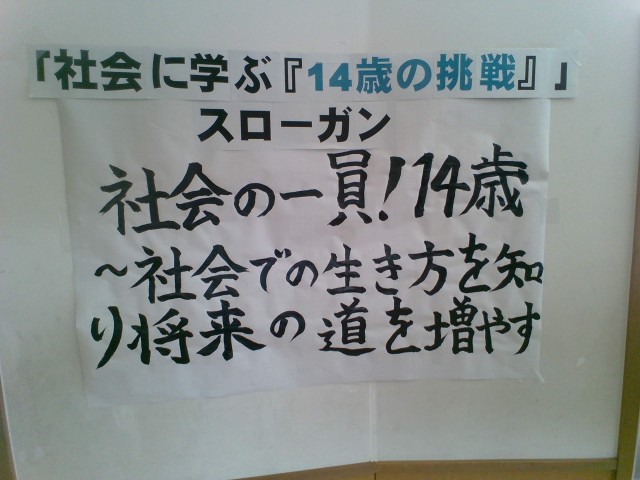 「社会に学ぶ『14歳の挑戦』」
スローガン
社会の一員!14歳
～社会での生き方を知
り将来の道を増やす